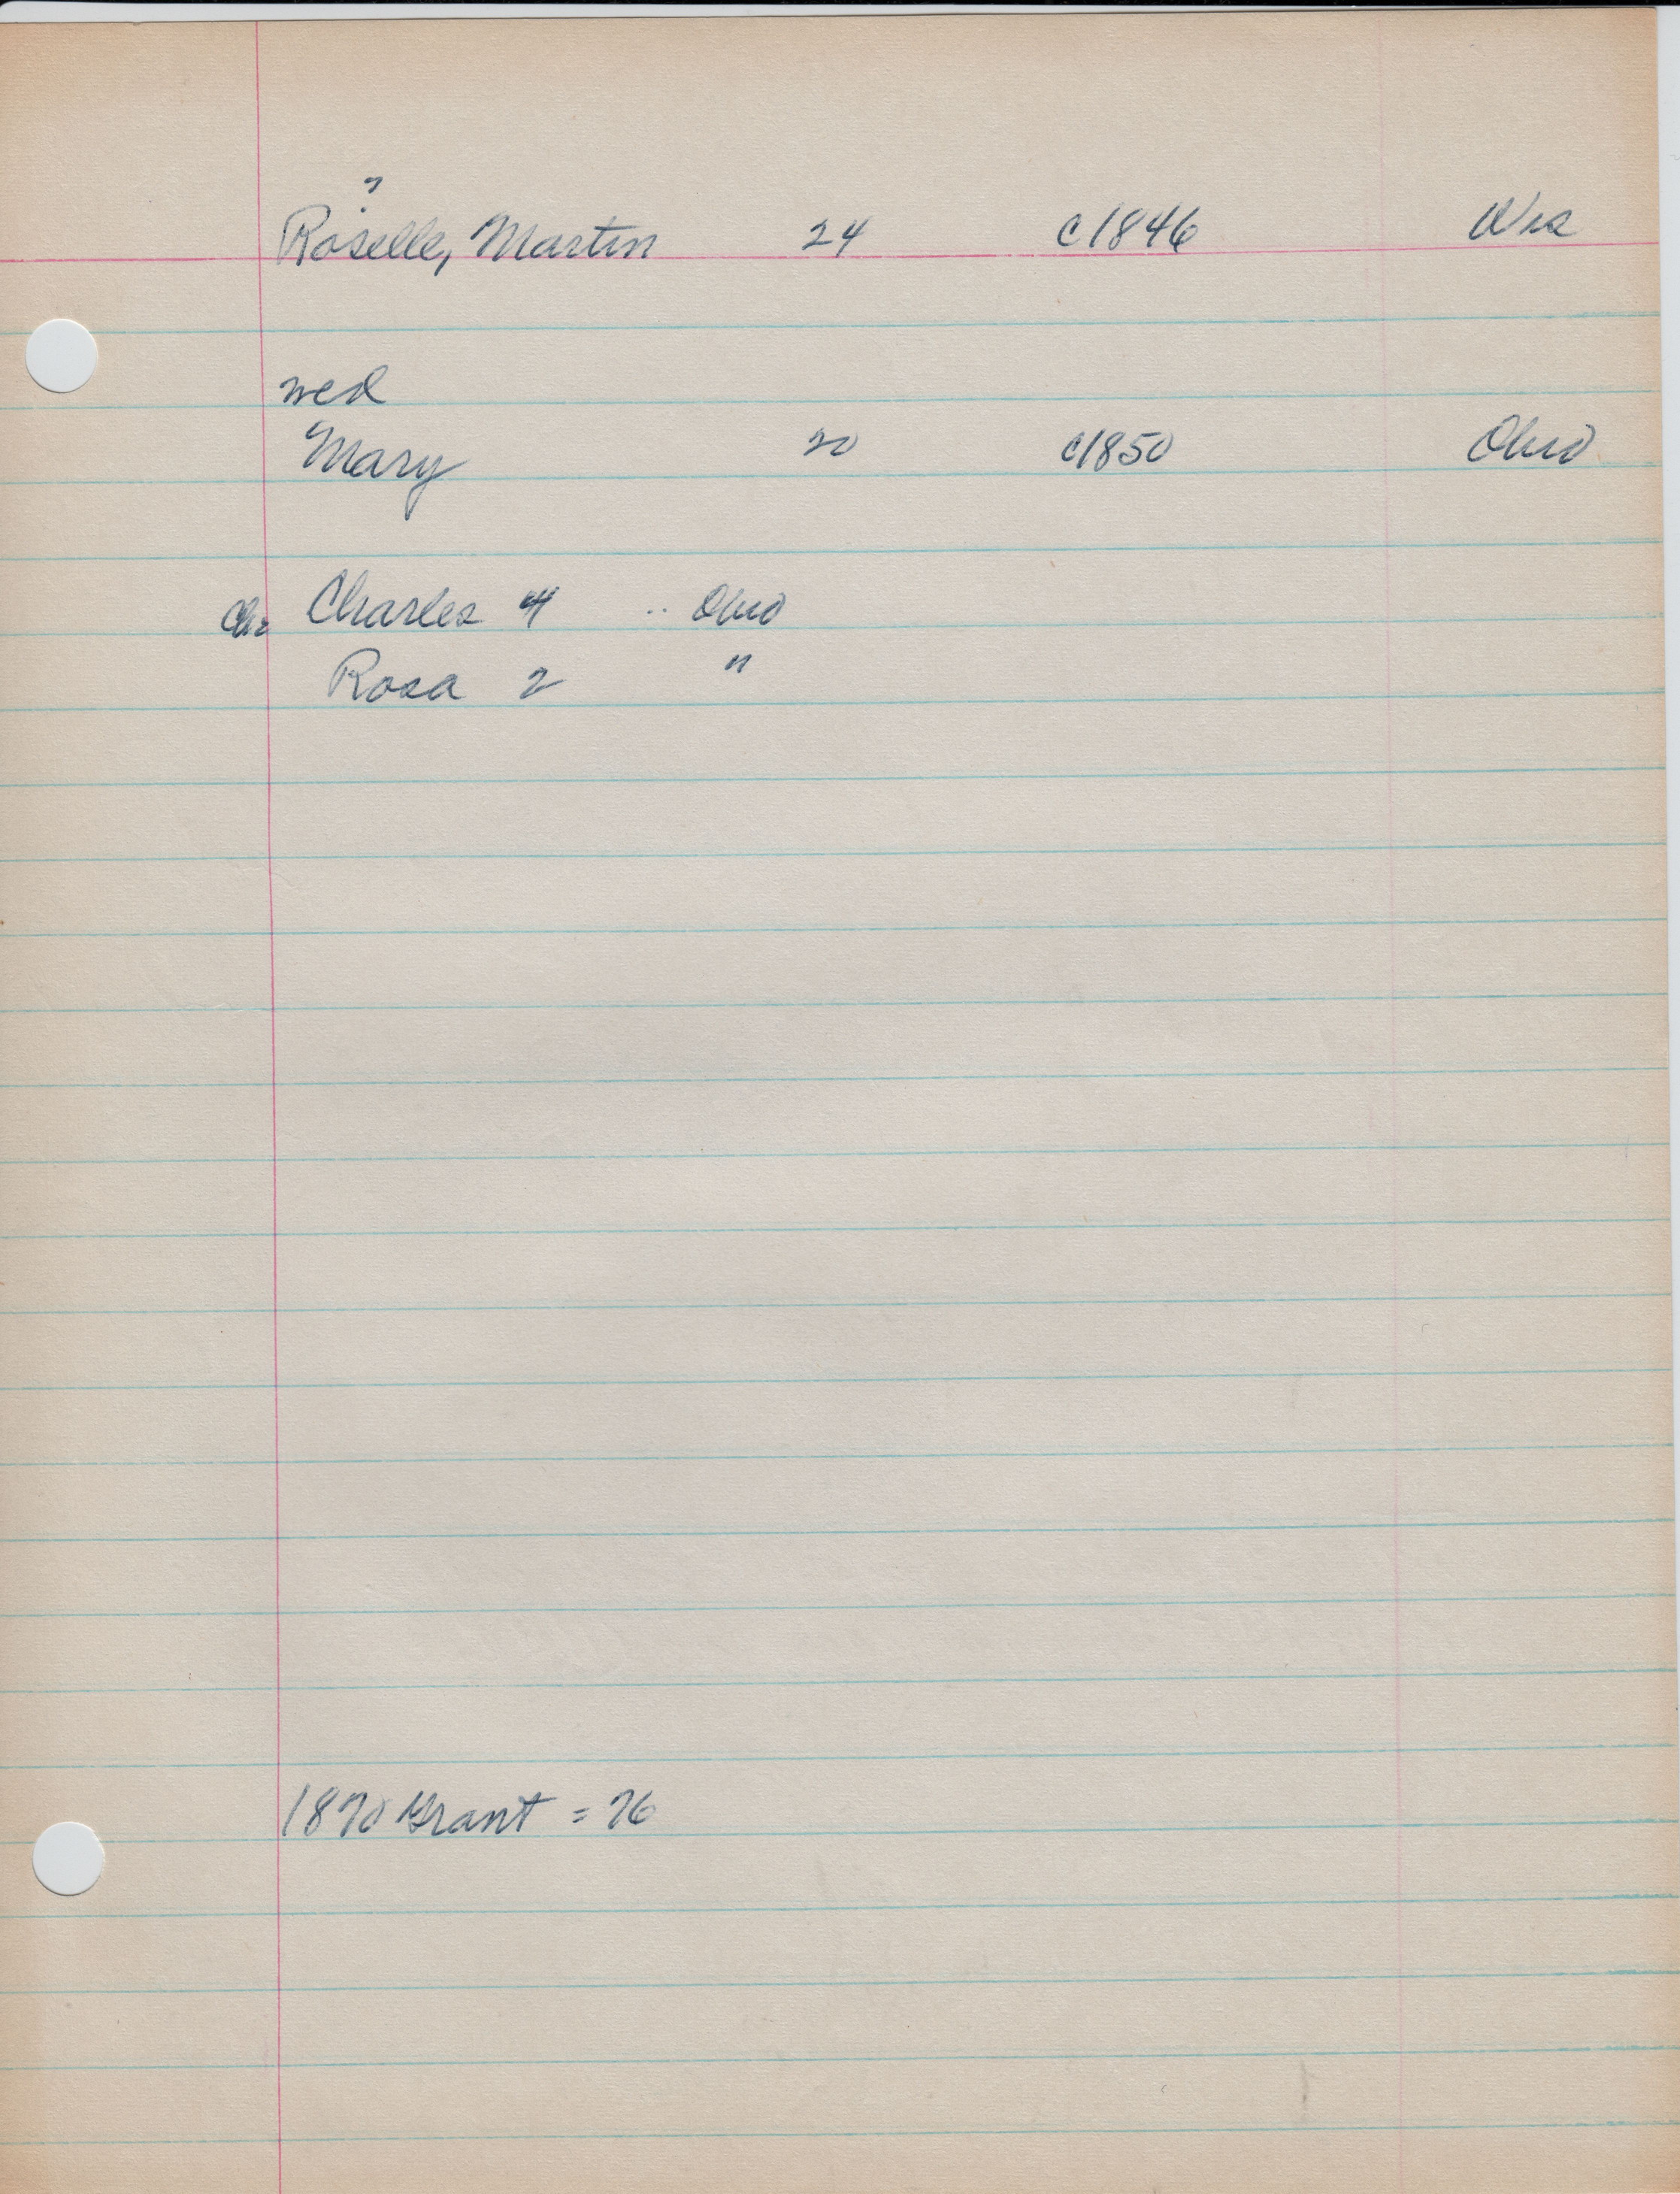 ?
Roselle, Martin 24 c1846 Wis
wed
Mary 20 c1850 Ohio
Ch: Charles 4 .. Ohio
Rosa 2 "
1870 Grant = 76